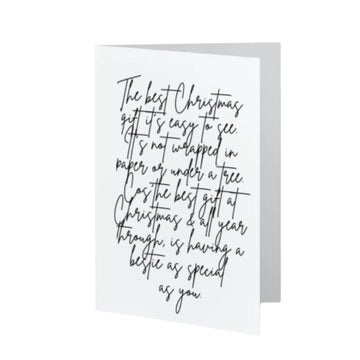 The best Christmas
gift it's easy to see.
It's not wrapped in
paper or under a tree.
Cos the best gift at
Christmas & all year
through, is having a
bestie as special
as you.